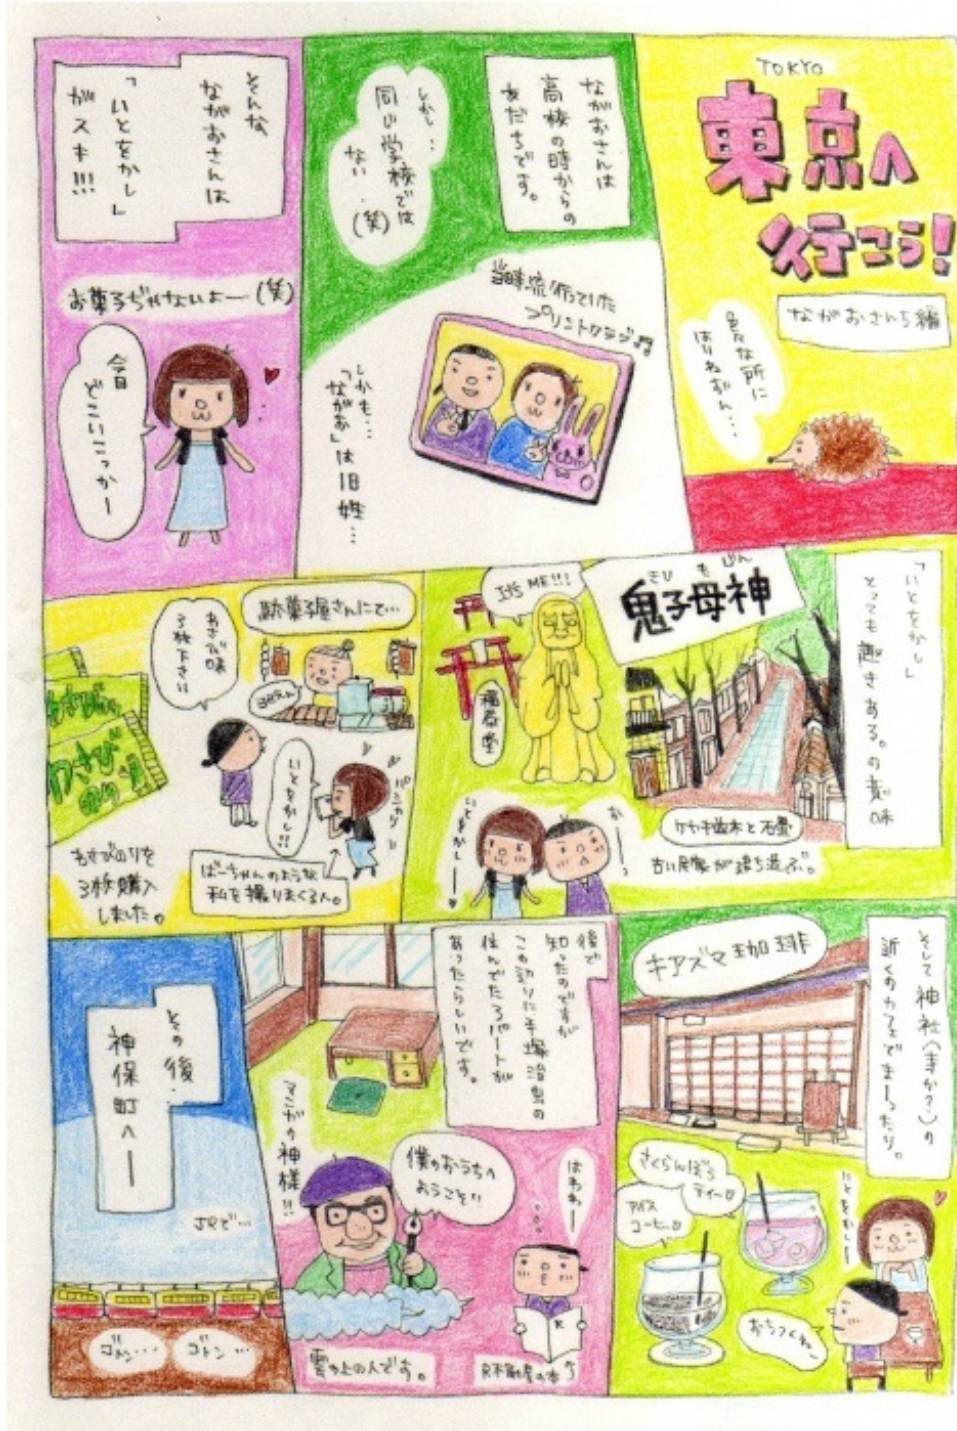 TOKYO
東京へ
行こう!
ながおさんち編
色々な所に
はりねずみ…
ながおさんは
高校の時からの
友だちです。
しかし…
同じ学校では
ない(笑)
当時流行っていた
プリントクラブ♫
しかも…
「ながお」は旧姓…
そんな
ながおさんは
「いとをかし」
がスキ!!!
お菓子ぢゃないよー(笑)
今日
どこいこっかー
「いとをかし」
とっても趣きある。の意味
きしもじん
鬼子母神
IT'S ME!!!
ケヤキ並木と石畳
古い民家が建ち並ぶ。
いとをかしー
おー
駄菓子屋さんにて…
わさび味
3枚下さい
わさびのり
わさび
のり
いとをかし!!
パシャリ
ばーちゃんのような
私を撮りまくる人。
わさびのりを
3枚購入
しました。
そして神社(寺か?)の
近くのカフェでまーったり。
キアズマ珈琲
さくらんぼう
ティー
アイス
コーヒー
いとをかしー
おちつくねー
後で
知ったのですが
この辺りに手塚治虫の
住んでたアパートが
あったらしいです。
マンガの神様!!
僕のおうちへ
ようこそ!!
はわわー
雲の上の人です。
その後、
神保町へー
JRで…
ゴトン…
ゴトン…